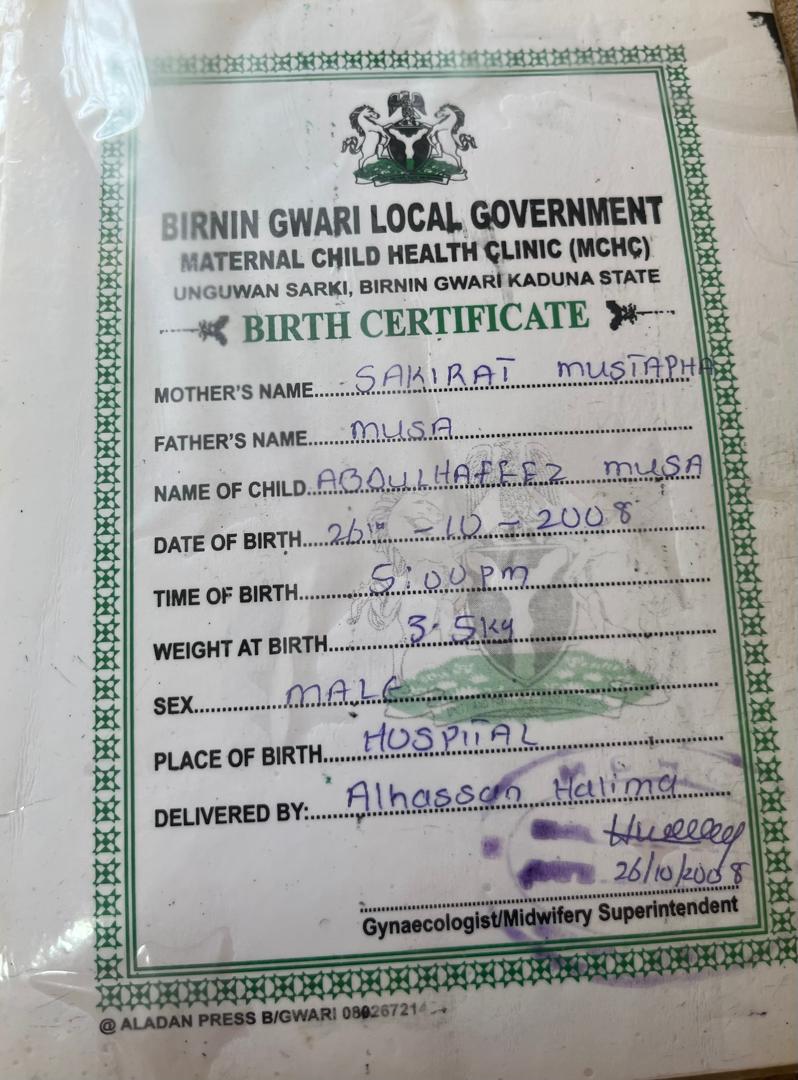 BIRNIN GWARI LOCAL GOVERNMENT
MATERNAL CHILD HEALTH CLINIC (MCHC)
UNGUWAN SARKI, BIRNIN GWARI KADUNA STATE
BIRTH CERTIFICATE
MOTHER'S NAME SAKIRAT MUSTAPHA
FATHER'S NAME MUSA
NAME OF CHILD ABDULHAFEEZ MUSA
DATE OF BIRTH 26th - 10 - 2008
TIME OF BIRTH 5:00pm
WEIGHT AT BIRTH 3.5kg
SEX MALE
PLACE OF BIRTH HOSPITAL
DELIVERED BY: Alhassan Halima
26/10/2008
Gynaecologist/Midwifery Superintendent
@ ALADAN PRESS B/GWARI